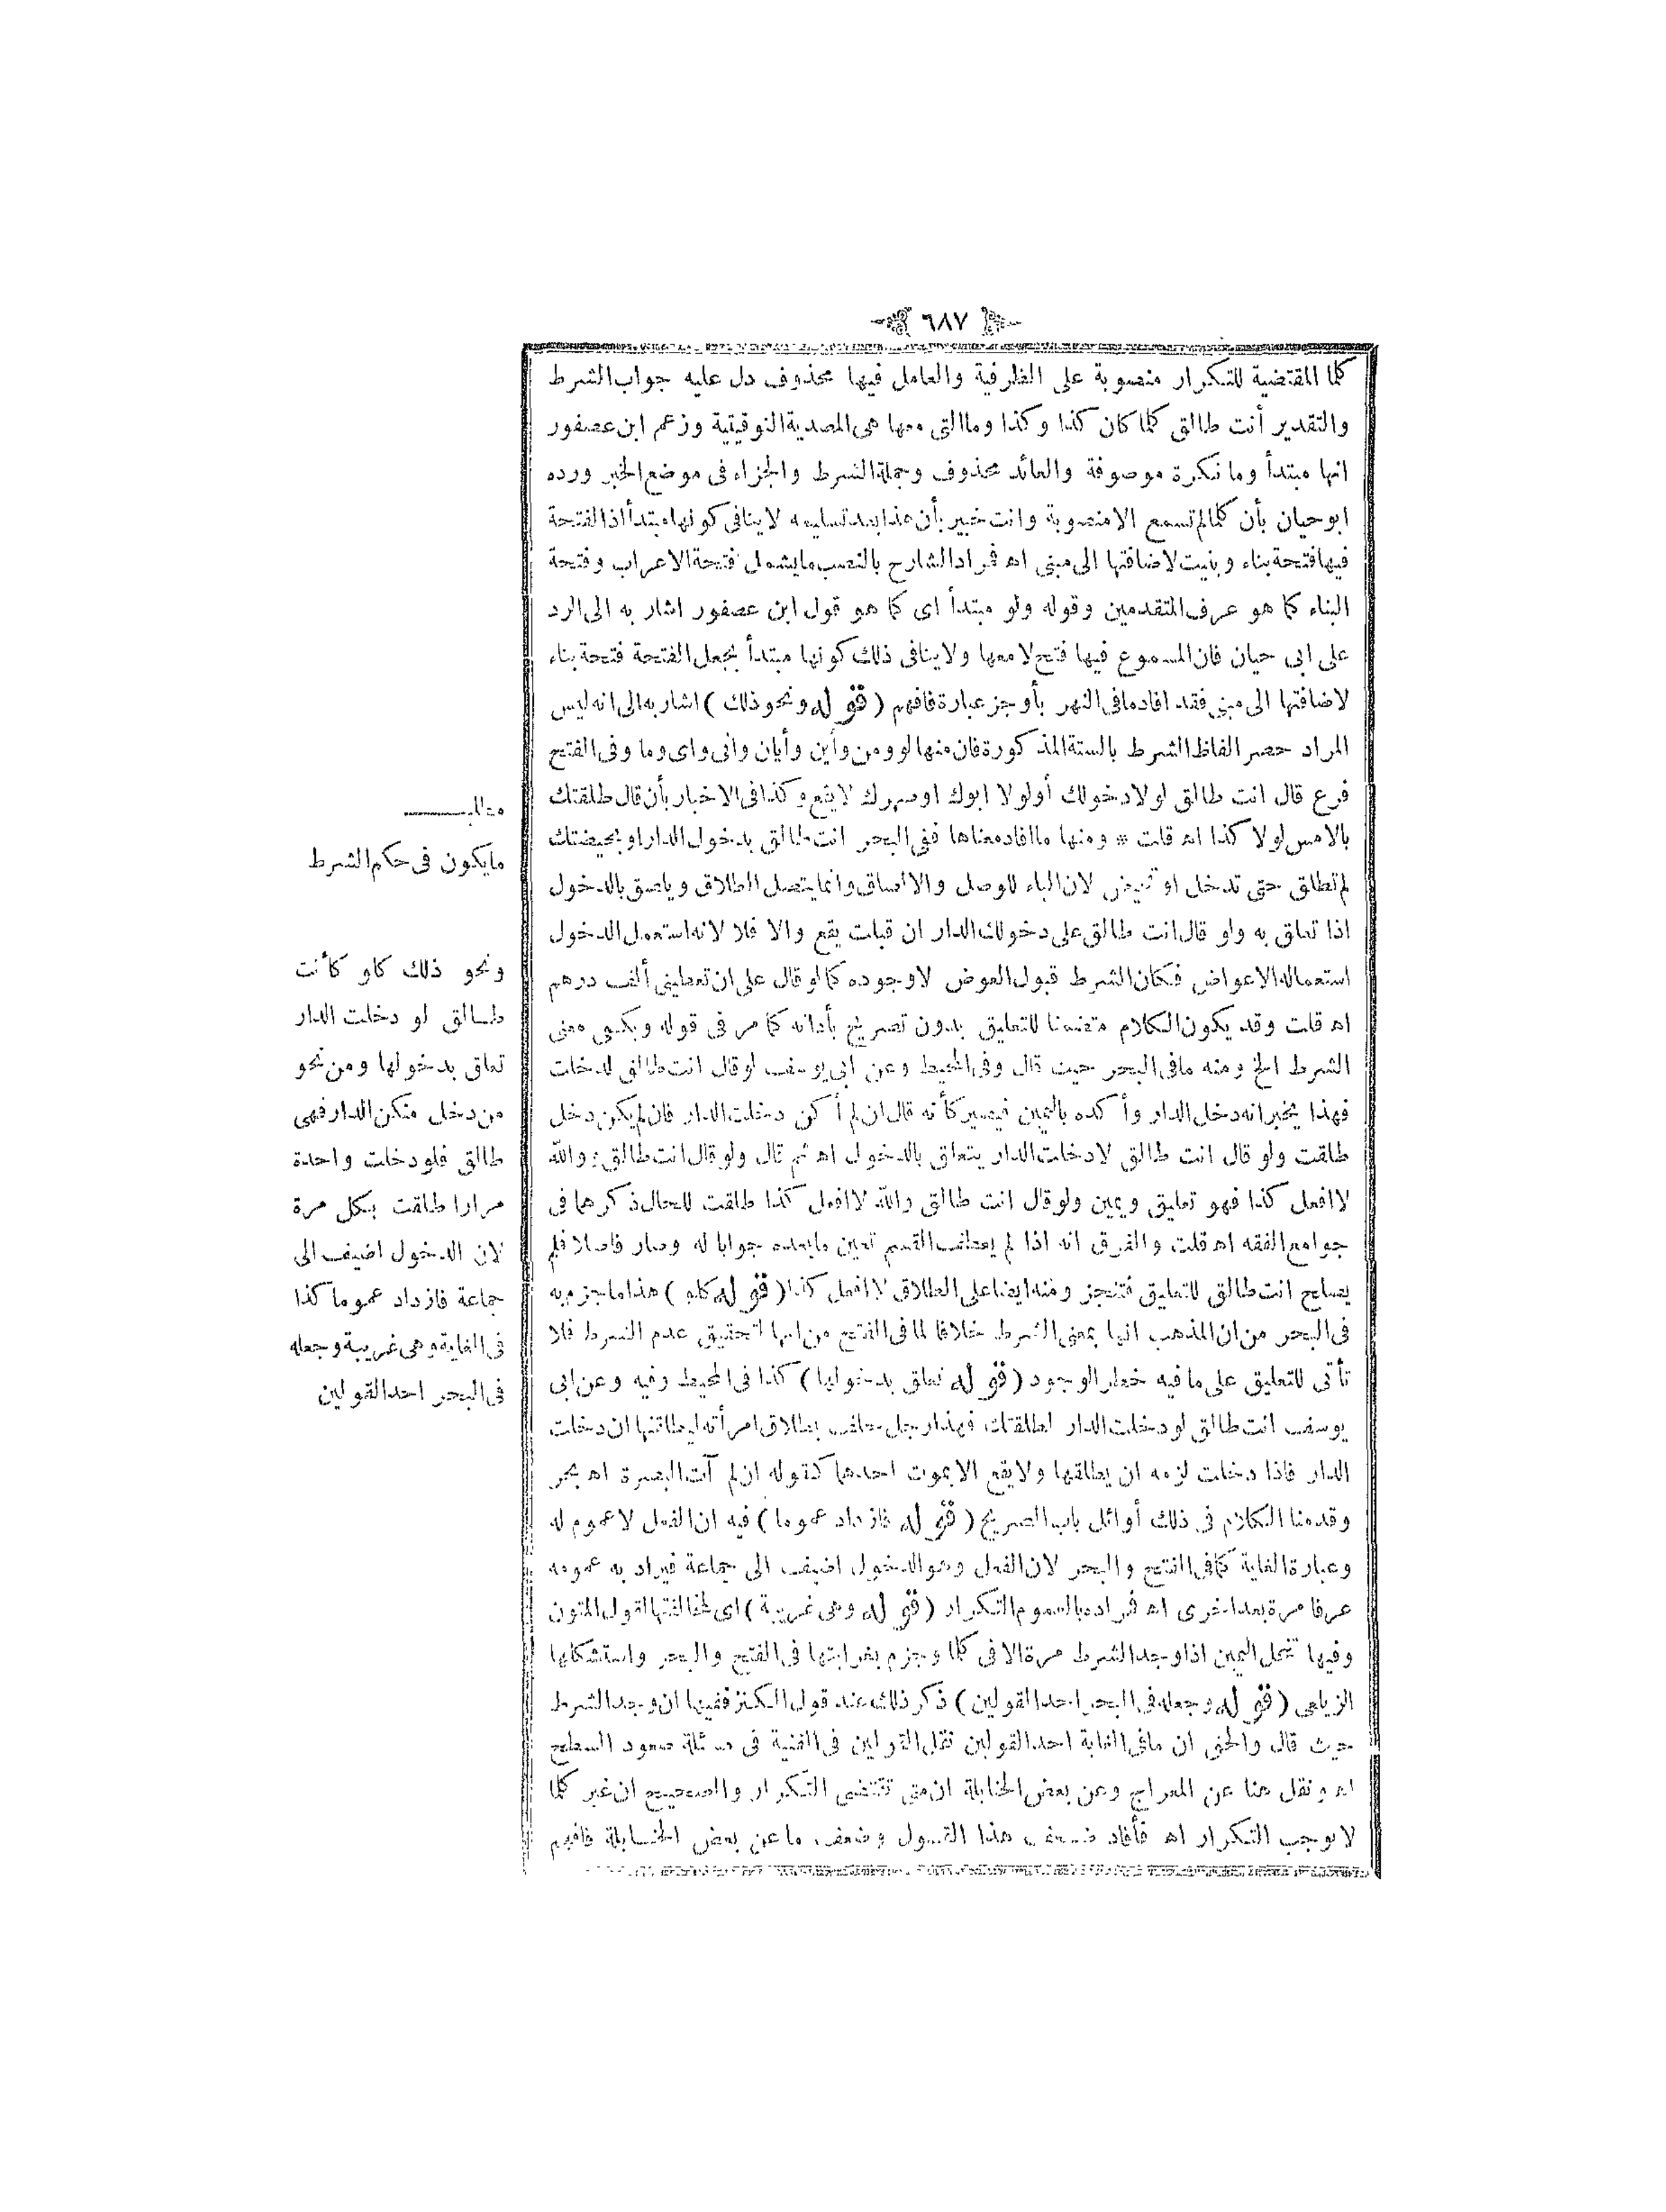 ٦٨٧
كلما المقتضية للتكرار منصوبة على الظرفية والعامل فيها محذوف دل عليه جواب الشرط
والتقدير أنت طالق كلما كان كذا وكذا وما التى معها هى المصدرية التوقيتية وزعم ابن عصفور
انها مبتدأ وما نكرة موصوفة والعائد محذوف وجملة الشرط والجزاء فى موضع الخبر ورده
ابو حيان بأن كلما لم تسمع الا منصوبة وانت خبير بأن هذا بعد تسليمه لا ينافى كونها مبتدأ اذ الفتحة
فيها فتحة بناء وبنيت لاضافتها الى مبنى اه فمراد الشارح بالنصب ما يشمل فتحة الاعراب وفتحة
البناء كما هو عرف المتقدمين وقوله ولو مبتدأ اى كما هو قول ابن عصفور اشار به الى الرد
على ابى حيان فان المسموع فيها فتح لامها ولا ينافى ذلك كونها مبتدأ بجعل الفتحة فتحة بناء
لاضافتها الى مبنى فقد افاد ما فى النهر بأوجز عبارة فافهم (قوله ونحو ذلك) اشار به الى انه ليس
المراد حصر الفاظ الشرط بالستة المذكورة فان منها لو ومن وأين وأيان وانى واى وما وفى الفتح
فرع قال انت طالق لولا دخولك أو لولا ابوك او مهرك لا يقع وكذا فى الاخبار بأن قال طلقتك
بالامس لولا كذا اه قلت * ومنها ما افاد معناها ففى البحر انت طالق بدخول الدار او بحيضتك
لم تطلق حتى تدخل او تحيض لان الباء للوصل والالصاق وانما يتصل الطلاق ويلصق بالدخول
اذا تعلق به ولو قال انت طالق على دخولك الدار ان قبلت يقع والا فلا لانه استعمل الدخول
استعمال الاعواض فكان الشرط قبول العوض لا وجوده كما لو قال على ان تعطينى ألف درهم
اه قلت وقد يكون الكلام متضمنا للتعليق بدون تصريح بأداته كما مر فى قوله ويكفى معنى
الشرط الخ ومنه ما فى البحر حيث قال وفى المحيط وعن ابى يوسف لو قال انت طالق لدخلت
فهذا يخبر انه دخل الدار وأكده باليمين فيصير كأنه قال ان لم أكن دخلت الدار فان لم يكن دخل
طلقت ولو قال انت طالق لا دخلت الدار يتعلق بالدخول اه ثم قال ولو قال انت طالق والله
لا افعل كذا فهو تعليق ويمين ولو قال انت طالق والله لا افعل كذا طلقت للحال ذكرهما فى
جوامع الفقه اه قلت والفرق انه اذا لم يعطف القسم تعين ما بعده جوابا له وصار فاصلا فلم
يصلح انت طالق للتعليق فتنجز ومنه ايضا على الطلاق لا افعل كذا (قوله كلو) هذا ما جزم به
فى البحر من ان المذهب انها بمعنى الشرط خلافا لما فى الفتح من انها لتحقيق عدم الشرط فلا
تأتى للتعليق على ما فيه خطر الوجود (قوله تعلق بدخولها) كذا فى المحيط وفيه وعن ابى
يوسف انت طالق لو دخلت الدار لطلقتك فهذا رجل حلف بطلاق امرأته ليطلقنها ان دخلت
الدار فاذا دخلت لزمه ان يطلقها ولا يقع الا بموت احدهما كقوله ان لم آت البصرة اه بحر
وقدمنا الكلام فى ذلك أوائل باب الصريح (قوله فازداد عموما) فيه ان الفعل لا عموم له
وعبارة الغاية كما فى الفتح والبحر لان الفعل وهو الدخول اضيف الى جماعة فيراد به عمومه
عرفا مرة بعد اخرى اه فمراده بالعموم التكرار (قوله وهى غريبة) اى لمخالفتها لقول المتون
وفيها تنحل اليمين اذا وجد الشرط مرة الا فى كلما وجزم بغرابتها فى الفتح والبحر واستشكلها
الزيلعى (قوله وجعله فى البحر احد القولين) ذكر ذلك عند قول الكنز ففيها ان وجد الشرط
حيث قال والحق ان ما فى الغاية احد القولين نقل القولين فى القنية فى مسئلة صعود السطح
اه ونقل هنا عن المعراج وعن بعض الحنابلة ان متى تقتضى التكرار والصحيح ان غير كلما
لا يوجب التكرار اه فأفاد ضعف هذا القول وضعف ما عن بعض الحنابلة فافهم
مطلب
ما يكون فى حكم الشرط
ونحو ذلك كلو كأنت
طالق لو دخلت الدار
تعلق بدخولها ومن نحو
من دخل منكن الدار فهى
طالق فلو دخلت واحدة
مرارا طلقت بكل مرة
لان الدخول اضيف الى
جماعة فازداد عموما كذا
فى الغاية وهى غريبة وجعله
فى البحر احد القولين